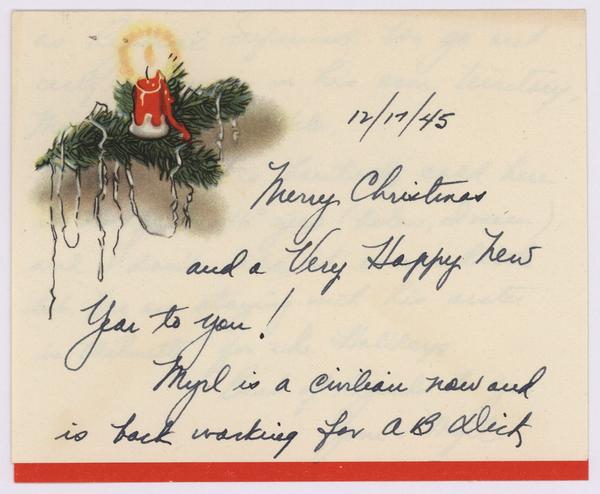 12/17/45
Merry Christmas
and a Very Happy New
Year to you!
Myrl is a civilian now and
is back working for AB Dick